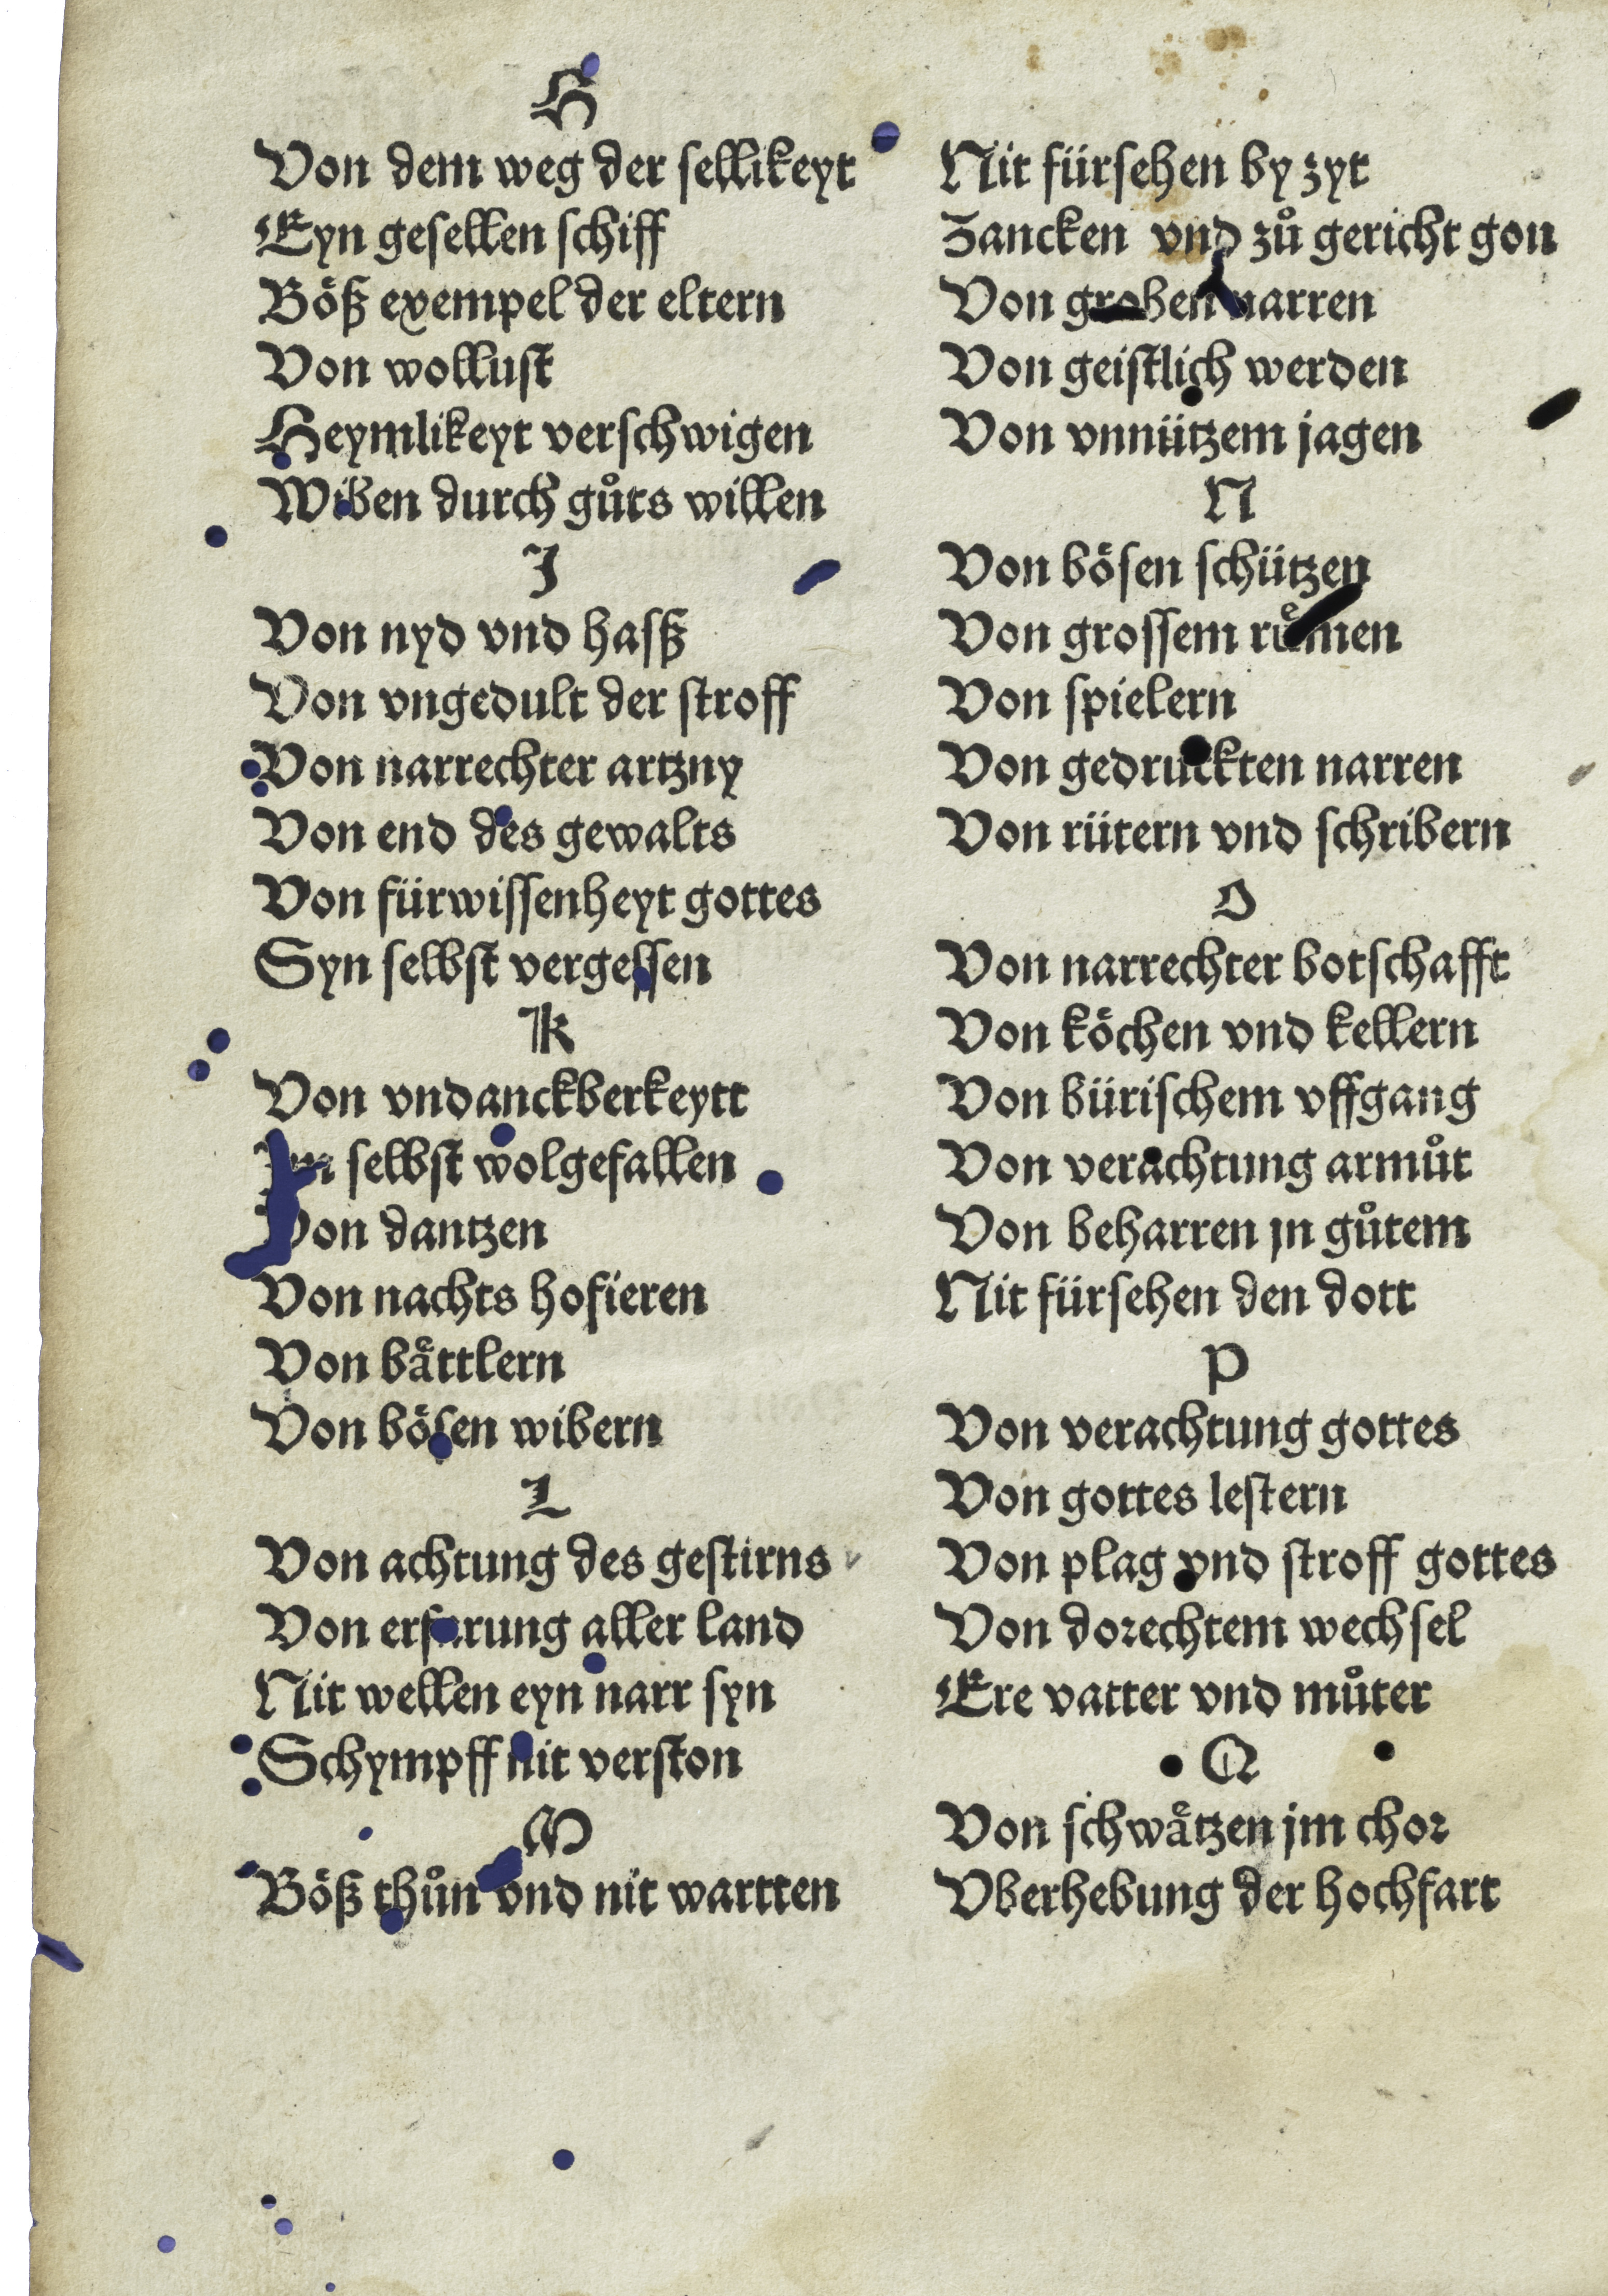 H
Von dem weg der sellikeyt
Eyn gesellen schiff
Böß exempel der eltern
Von wollust
Heymlikeyt verschwigen
Wiben durch gůts willen
J
Von nyd vnd hasß
Von vngedult der stroff
Von narrechter artzny
Von end des gewalts
Von fürwissenheyt gottes
Syn selbst vergessen
K
Von vndanckberkeytt
selbst wolgefallen
Von dantzen
Von nachts hofieren
Von båttlern
Von bösen wibern
L
Von achtung des gestirns
Von erfarung aller land
Nit wellen eyn narr syn
Schympff nit verston
M
Böß thůn vnd nit wartten
Nit fürsehen by zyt
Zancken vnd zů gericht gon
Von groben narren
Von geistlich werden
Von vnnützem jagen
N
Von bösen schützen
Von grossem růmen
Von spielern
Von gedruckten narren
Von rütern vnd schribern
O
Von narrechter botschafft
Von köchen vnd kellern
Von bürischem vffgang
Von verachtung armůt
Von beharren jn gůtem
Nit fürsehen den dott
P
Von verachtung gottes
Von gottes lestern
Von plag vnd stroff gottes
Von dorechtem wechsel
Ere vatter vnd můter
Q
Von schwåtzen jm chor
Vberhebung der hochfart